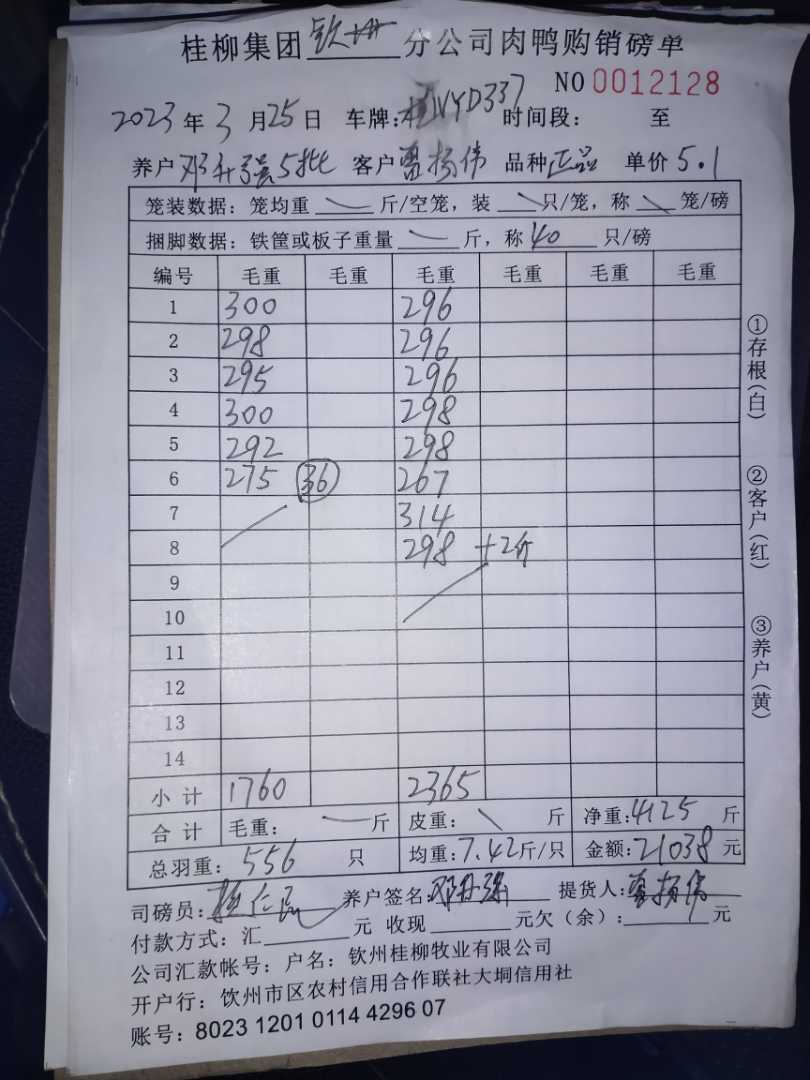 桂柳集团钦州分公司肉鸭购销磅单
NO 0012128
2023年3月25日 车牌:桂NYD337 时间段: 至
养户邓升强5批 客户曹杨伟 品种正品 单价5.1
笼装数据：笼均重 斤/空笼，装 只/笼，称 笼/磅
捆脚数据：铁筐或板子重量 斤，称40只/磅
编号 毛重 毛重 毛重 毛重 毛重 毛重
1 300 296
2 298 296
3 295 296
4 300 298
5 292 298
6 275 36 267
7 314
8 298 +2斤
9
10
11
12
13
14
小计 1760 2365
合计 毛重： 斤 皮重： 斤 净重:4125斤
总羽重：556 只 均重:7.42斤/只 金额:21038元
司磅员： 养户签名:邓升强 提货人:曹杨伟
付款方式：汇 元 收现 元欠（余）： 元
公司汇款帐号：户名：钦州桂柳牧业有限公司
开户行：饮州市区农村信用合作联社大垌信用社
账号：8023 1201 0114 4296 07
①存根(白)
②客户(红)
③养户(黄)